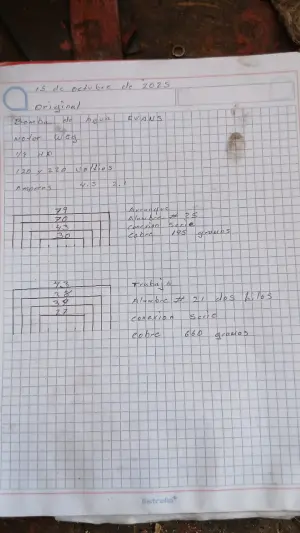 15 de octubre de 2025
Original
Bomba de Agua EVANS
Motor Weg
1/2 HP
120 x 220 voltios
Amperes 4.5 2.1
79 Arranque
70 Alambre # 25
43 conexion serie
30 Cobre 145 gramos
43 Trabajo
38
39 Alambre # 21 dos hilos
27 conexion serie
Cobre 660 gramos